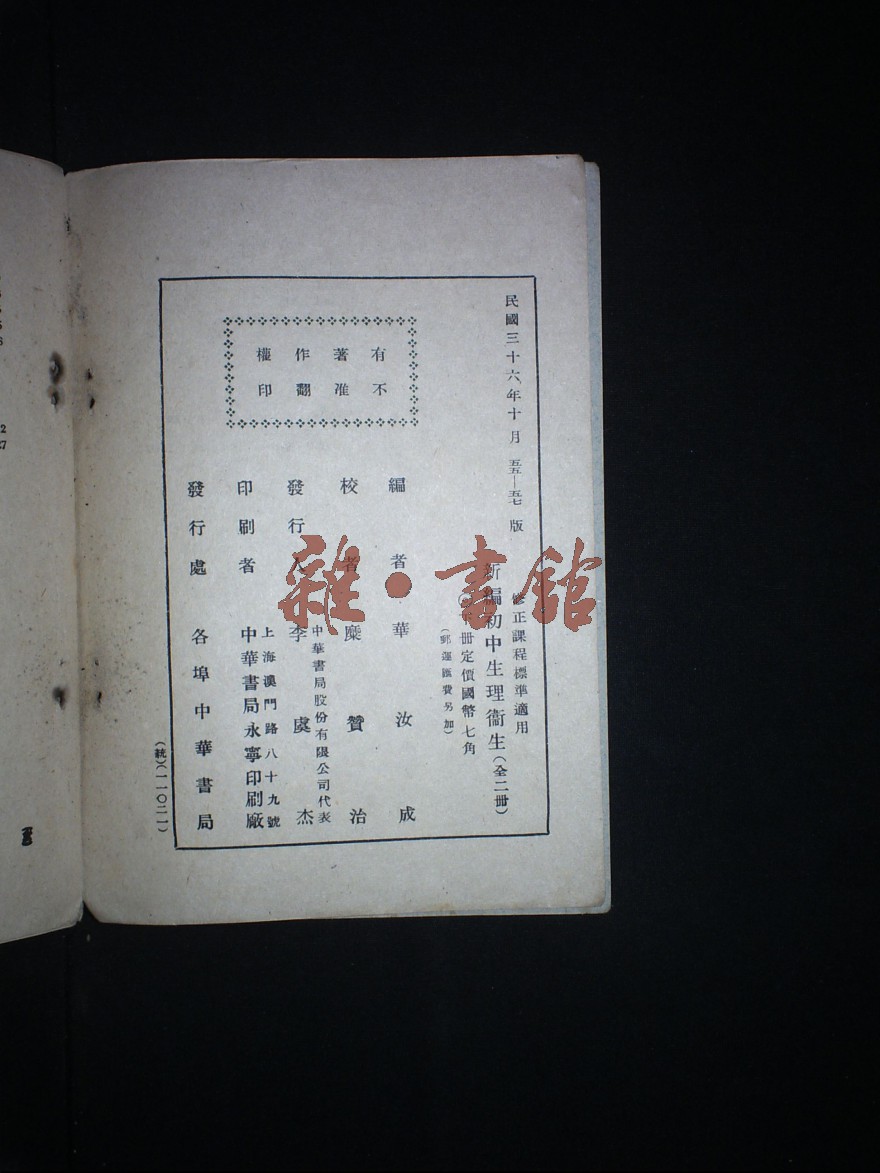 民國三十六年十月五五—五七版
修正課程標準適用
新編初中生理衞生(全二冊)
冊定價國幣七角
(郵運匯費另加)
有著作權
不准翻印
編者華汝成
校者糜贊治
中華書局股份有限公司代表
發行人李虞杰
上海澳門路八十九號
印刷者中華書局永寧印刷廠
發行處各埠中華書局
(統)(一一〇二一)
雜·書館
2
27